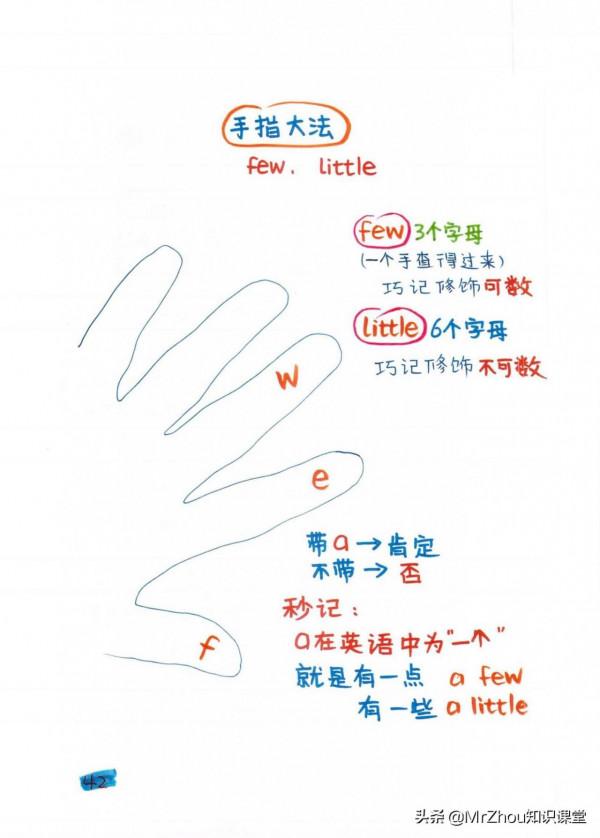 手指大法
few. little
few 3个字母
(一个手查得过来)
巧记修饰可数
little 6个字母
巧记修饰不可数
w
e
f
带a→肯定
不带→否
秒记:
a在英语中为"一个"
就是有一点 a few
有一些 a little
42
头条 @MrZhou知识课堂